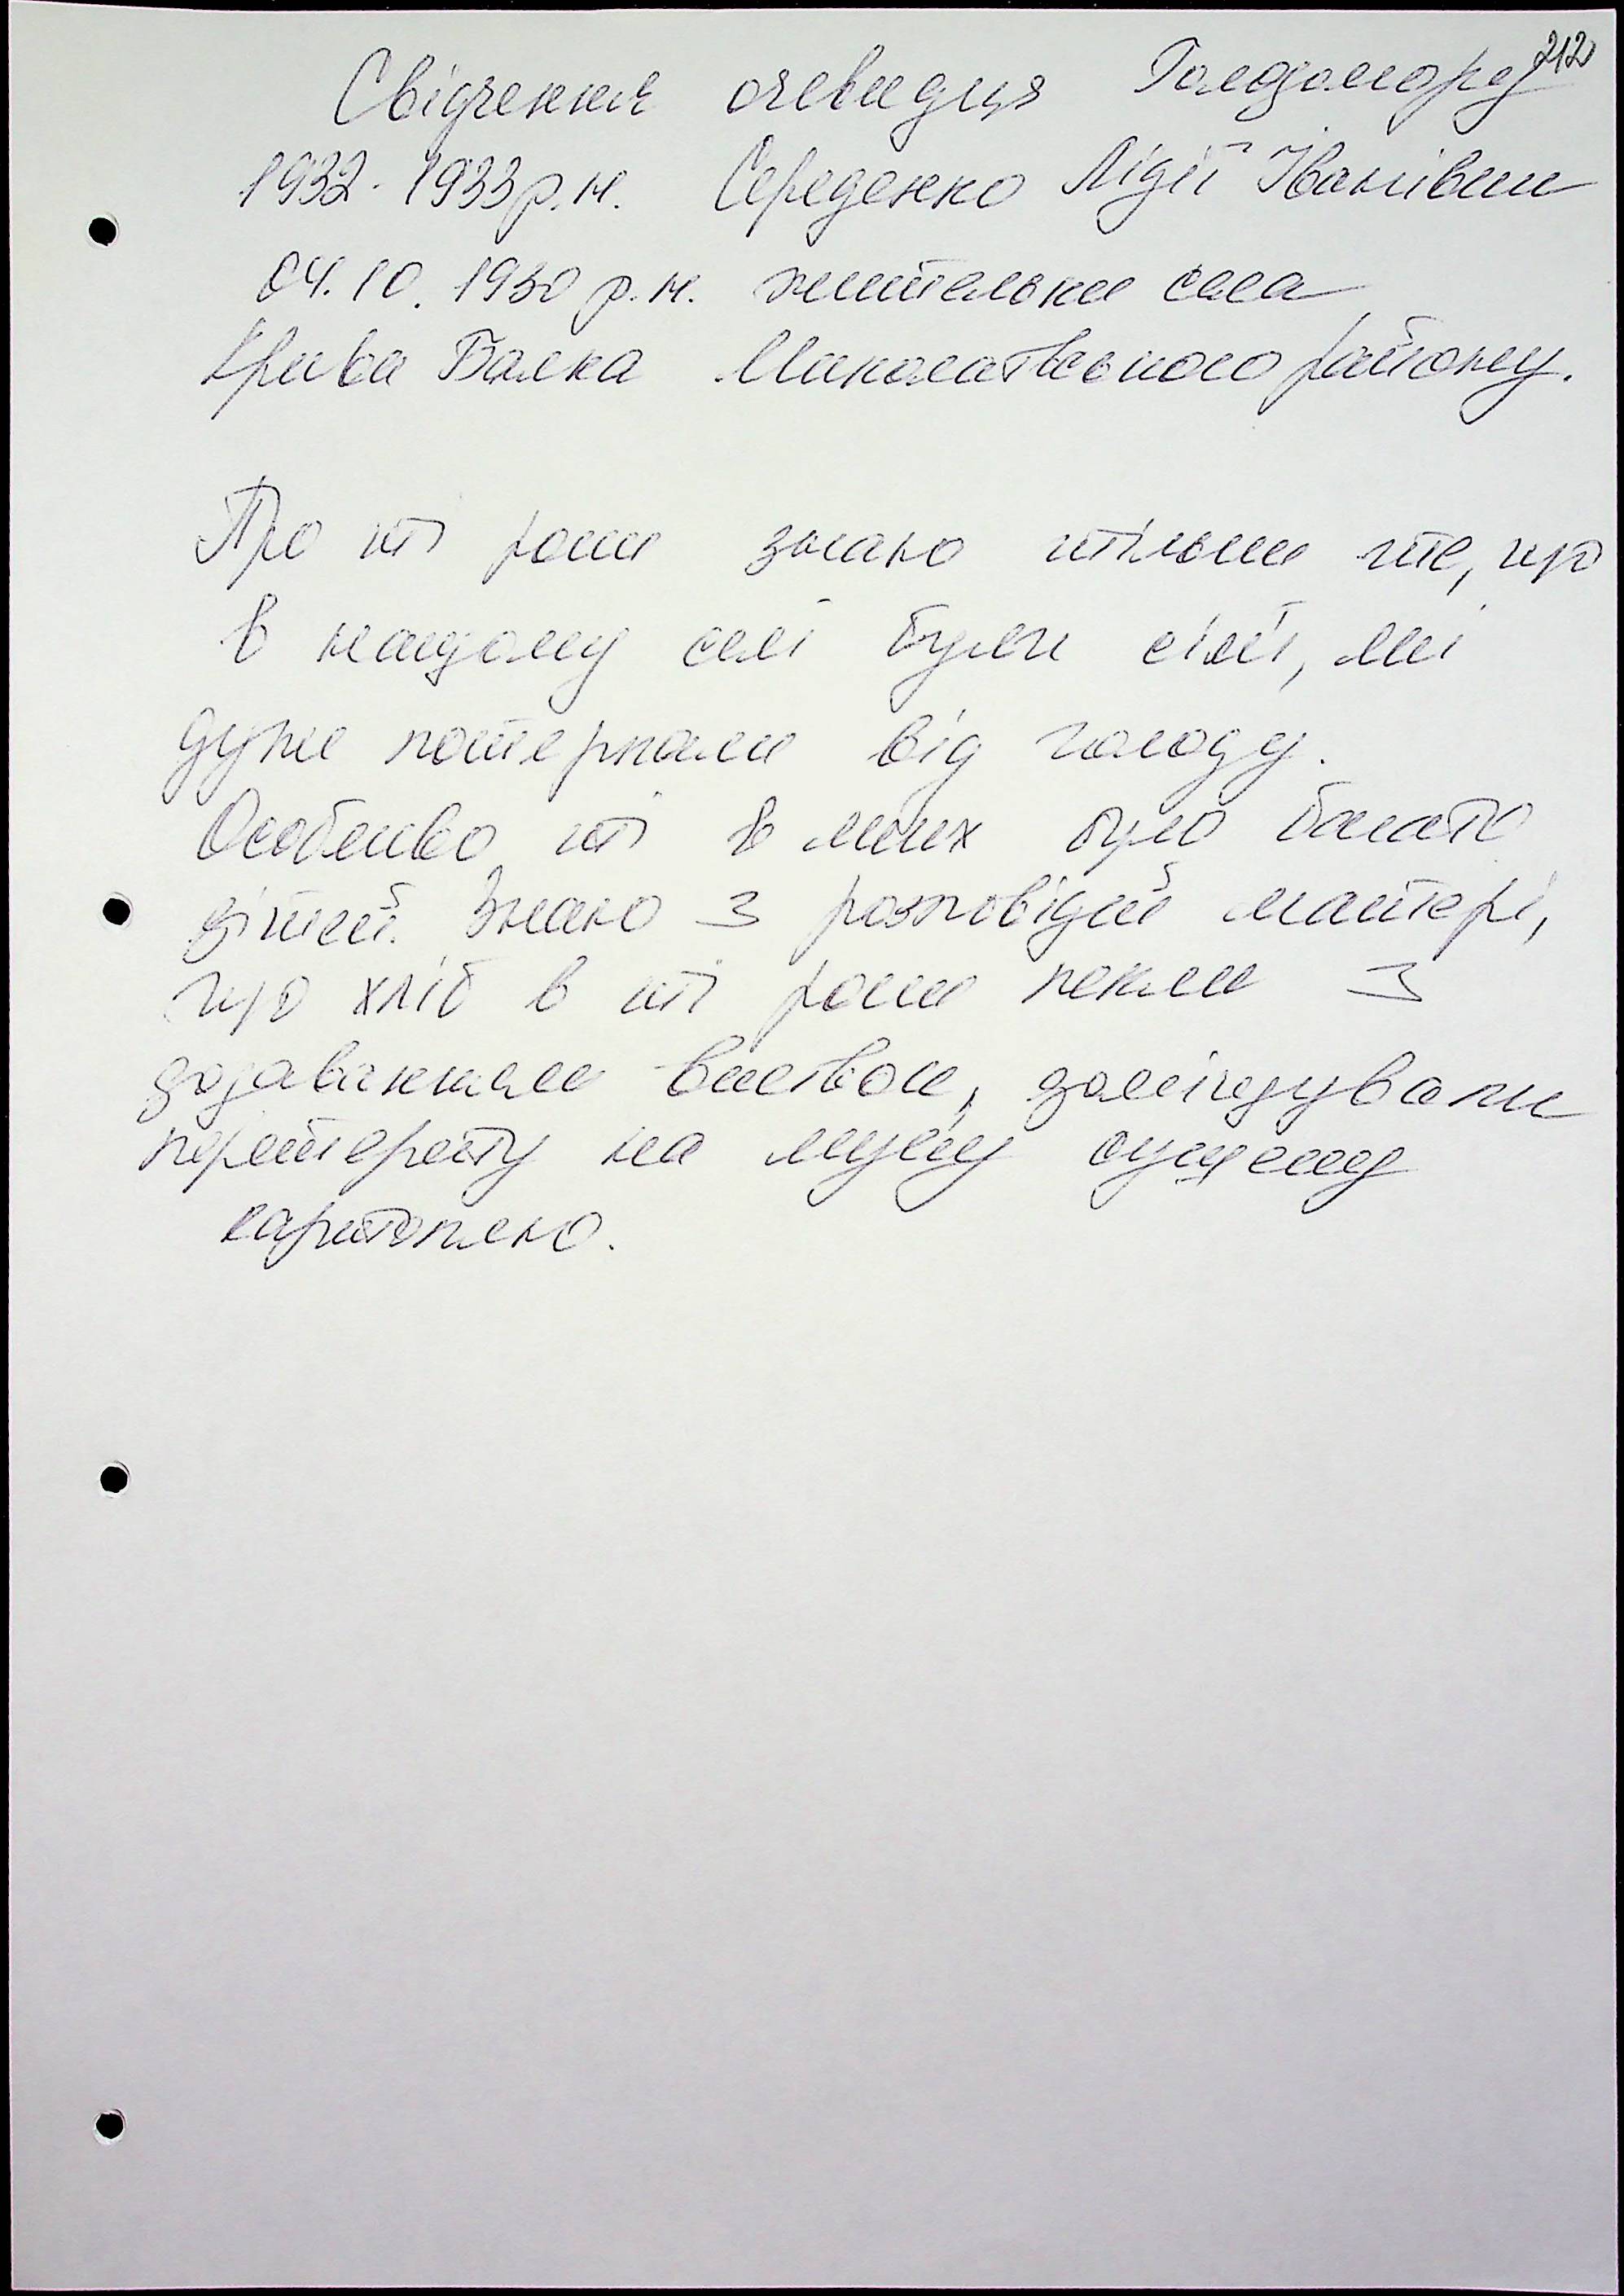 212
Свідчення очевидця Голодомору
1932-1933 р.н. Середенко Лідії Іванівни
04.10.1930 р.н. жительки села
Крива Балка Миколаївського району.
Про ті роки знаю тільки те, що
в нашому селі були сім'ї, які
дуже потерпали від голоду.
Особливо ті в яких було багато
дітей. Знаю з розповідей матері,
що хліб в ті роки пекли з
додаванням висівок, домішували
перетерту на муку сушену
картоплю.